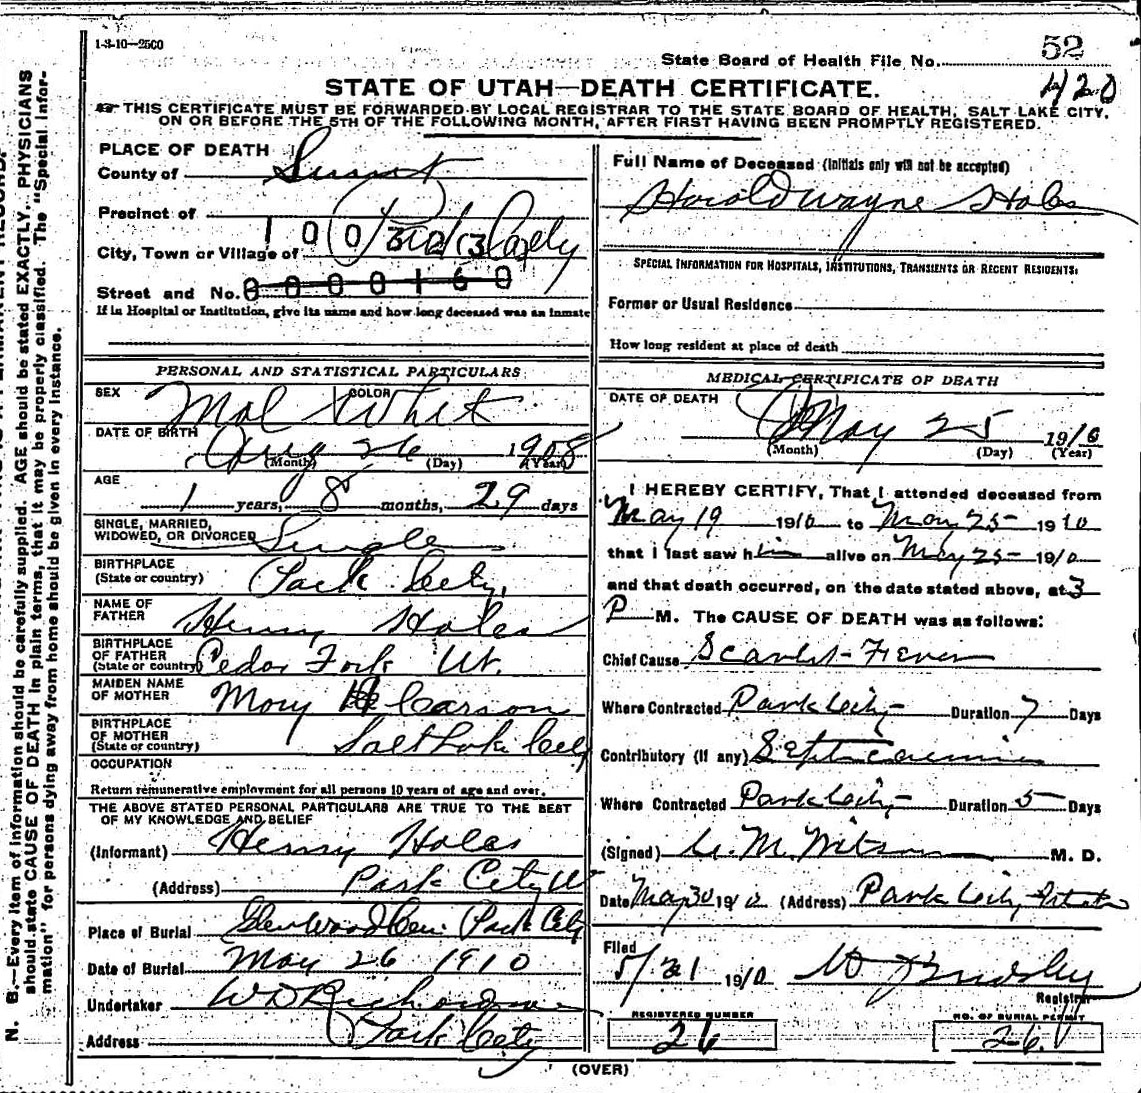 1-3-10—2500
State Board of Health File No. 52
420
STATE OF UTAH—DEATH CERTIFICATE.
THIS CERTIFICATE MUST BE FORWARDED BY LOCAL REGISTRAR TO THE STATE BOARD OF HEALTH, SALT LAKE CITY,
ON OR BEFORE THE 5TH OF THE FOLLOWING MONTH, AFTER FIRST HAVING BEEN PROMPTLY REGISTERED.
PLACE OF DEATH
County of Summit
Precinct of
City, Town or Village of Park City
100323
Street and No. 0000160
If in Hospital or Institution, give its name and how long deceased was an inmate
PERSONAL AND STATISTICAL PARTICULARS
SEX Mal COLOR Whit
DATE OF BIRTH Aug 26 1908
(Month) (Day) (Year)
AGE
1 years, 8 months, 29 days
SINGLE, MARRIED,
WIDOWED, OR DIVORCED Single
BIRTHPLACE
(State or country) Park City,
NAME OF
FATHER Henry Holes
BIRTHPLACE
OF FATHER
(State or country) Cedar Fork Ut.
MAIDEN NAME
OF MOTHER Mary Carson
BIRTHPLACE
OF MOTHER
(State or country) Salt Lake City
OCCUPATION
Return remunerative employment for all persons 10 years of age and over.
THE ABOVE STATED PERSONAL PARTICULARS ARE TRUE TO THE BEST
OF MY KNOWLEDGE AND BELIEF
(Informant) Henry Holes
(Address) Park City Ut
Place of Burial Glenwood Cem Park City
Date of Burial May 26 1910
Undertaker W D Richardson
Address Park City
Full Name of Deceased (initials only will not be accepted)
Harold Wayne Holes
SPECIAL INFORMATION FOR HOSPITALS, INSTITUTIONS, TRANSIENTS OR RECENT RESIDENTS:
Former or Usual Residence
How long resident at place of death
MEDICAL CERTIFICATE OF DEATH
DATE OF DEATH
May 25 1910
(Month) (Day) (Year)
I HEREBY CERTIFY, That I attended deceased from
May 19 1910 to May 25 1910
that I last saw him alive on May 25 1910
and that death occurred, on the date stated above, at 3
P M. The CAUSE OF DEATH was as follows:
Chief Cause Scarlet Fever
Where Contracted Park City Duration 7 Days
Contributory (if any) Septicaemia
Where Contracted Park City Duration 5 Days
(Signed) M. Wilson M. D.
Date May 30 1910 (Address) Park City Utah
Filed
5/31 1910
Registrar
REGISTERED NUMBER
26
NO. OF BURIAL PERMIT
26.
(OVER)
N. B.—Every item of information should be carefully supplied. AGE should be stated EXACTLY. PHYSICIANS
should state CAUSE OF DEATH in plain terms, that it may be properly classified. The "Special Infor-
mation" for persons dying away from home should be given in every instance.